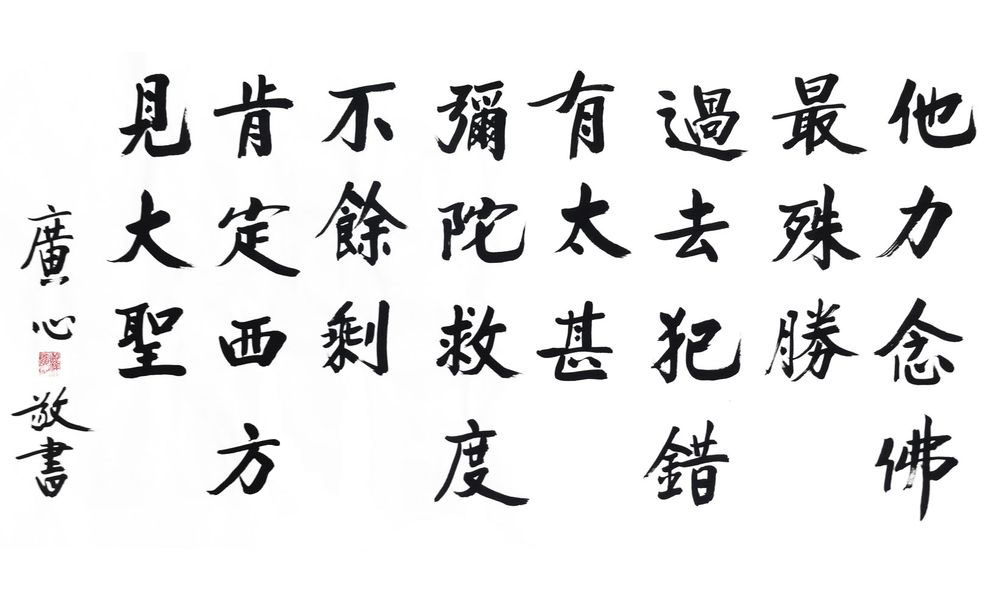 他力念佛
最殊勝
過去犯錯
有太甚
彌陀救度
不餘剩
肯定西方
見大聖
廣心
敬書